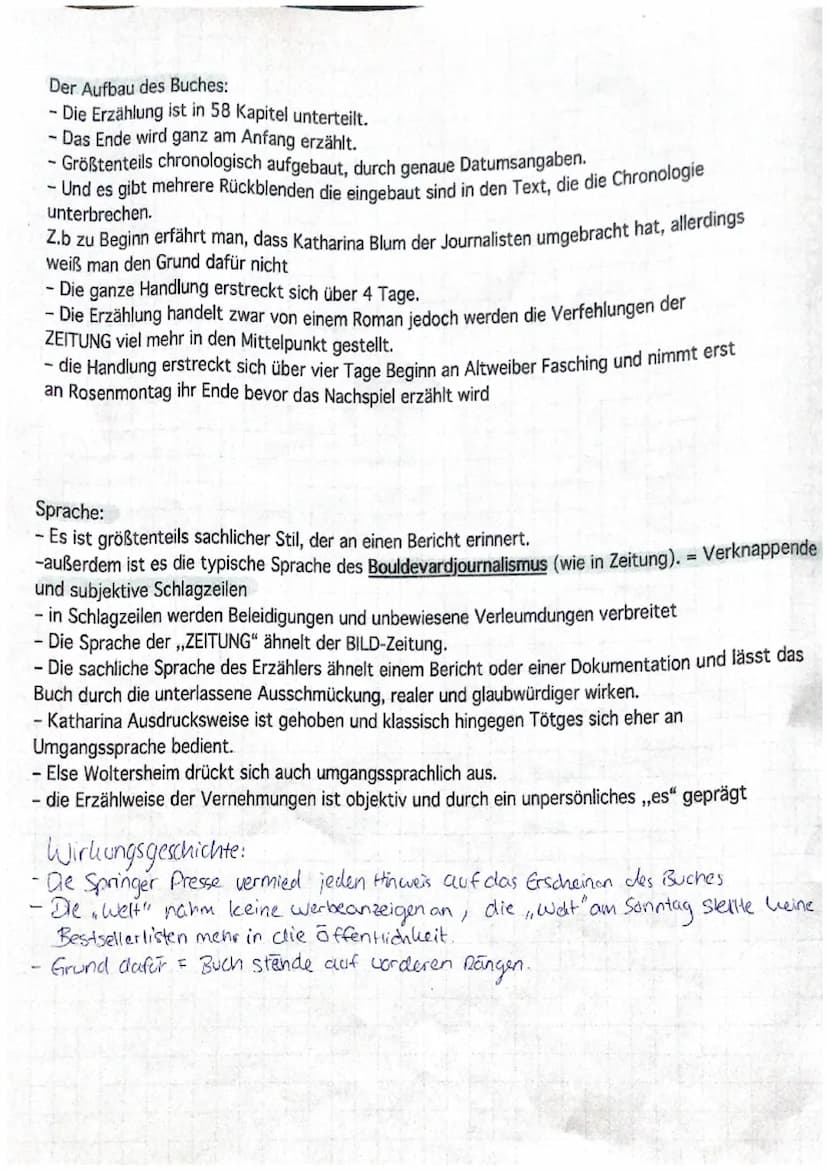 Der Aufbau des Buches:
- Die Erzählung ist in 58 Kapitel unterteilt.
- Das Ende wird ganz am Anfang erzählt.
- Größtenteils chronologisch aufgebaut, durch genaue Datumsangaben.
- Und es gibt mehrere Rückblenden die eingebaut sind in den Text, die die Chronologie
unterbrechen.
Z.b zu Beginn erfährt man, dass Katharina Blum der Journalisten umgebracht hat, allerdings
weiß man den Grund dafür nicht
- Die ganze Handlung erstreckt sich über 4 Tage.
- Die Erzählung handelt zwar von einem Roman jedoch werden die Verfehlungen der
ZEITUNG viel mehr in den Mittelpunkt gestellt.
- die Handlung erstreckt sich über vier Tage Beginn an Altweiber Fasching und nimmt erst
an Rosenmontag ihr Ende bevor das Nachspiel erzählt wird
Sprache:
- Es ist größtenteils sachlicher Stil, der an einen Bericht erinnert.
-außerdem ist es die typische Sprache des Bouldevardjournalismus (wie in Zeitung). = Verknappende
und subjektive Schlagzeilen
- in Schlagzeilen werden Beleidigungen und unbewiesene Verleumdungen verbreitet
- Die Sprache der ,,ZEITUNG“ ähnelt der BILD-Zeitung.
- Die sachliche Sprache des Erzählers ähnelt einem Bericht oder einer Dokumentation und lässt das
Buch durch die unterlassene Ausschmückung, realer und glaubwürdiger wirken.
- Katharina Ausdrucksweise ist gehoben und klassisch hingegen Tötges sich eher an
Umgangssprache bedient.
- Else Woltersheim drückt sich auch umgangssprachlich aus.
- die Erzählweise der Vernehmungen ist objektiv und durch ein unpersönliches ,,es“ geprägt
Wirkungsgeschichte:
- Die Springer Presse vermied jeden Hinweis auf das Erscheinen des Buches
- Die „Welt" nahm keine Werbeanzeigen an, die „Welt" am Sonntag stellte keine
Bestsellerlisten mehr in die Öffentlichkeit.
- Grund dafür = Buch stände auf vorderen Rängen.